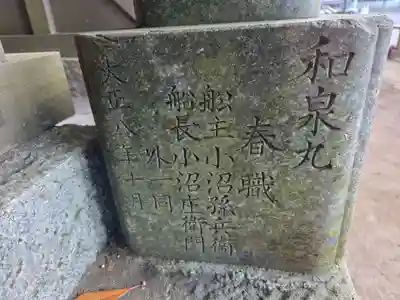 和泉丸
春職
船主小沼孫兵衛
船長小沼庄衛門
外一同
大正八年十月